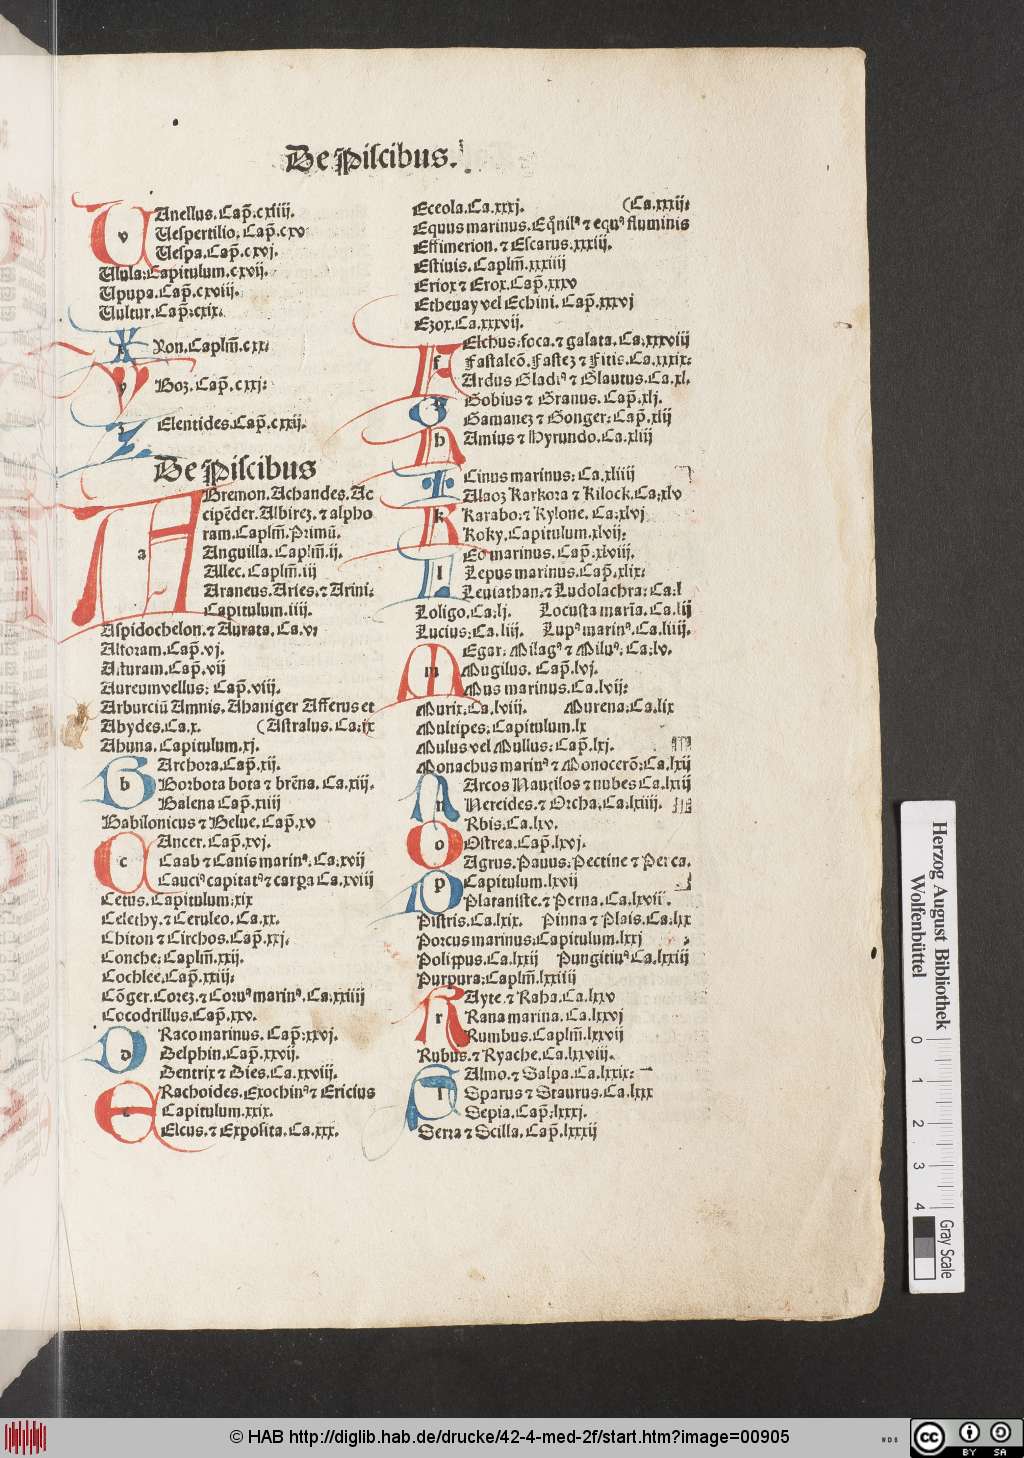 De Piscibus.
VAnellus. Cap̃. cxiiij.
Vespertilio. Cap̃. cxv
Vespa. Cap̃. cxvj.
Ulula: Capitulum. cxvij.
Upupa. Cap̃. cxviij.
Vultur. Cap̃: cxix.
XRon. Caplm̃. cxx:
YBoz. Cap̃. cxxj:
ZElentides. Cap̃. cxxij.
De Piscibus
ABremon. Achandes. Ac
cipẽder. Albirez. ⁊ alpho
ram. Caplm̃. Primũ.
Anguilla. Caplm̃. ij.
Allec. Caplm̃. iij
Araneus. Aries. ⁊ Arini:
Capitulum. iiij.
Aspidochelon. ⁊ Aurata. Ca. v
Altoram. Cap̃. vj.
Asturam. Cap̃. vij
Aureum vellus: Cap̃. viij.
Arburciũ Amnis. Abaniger Afferus et
Abydes. Ca. x. (Astralus. Ca: ix
Ahuna. Capitulum. xj.
BArchora. Cap̃. xij.
Borbota bota ⁊ brẽna. Ca. xiij.
Balena Cap̃. xiiij
Babilonicus ⁊ Belue. Cap̃. xv
CAncer. Cap̃. xvj.
Caab ⁊ Canis marinꝰ. Ca: xvij
Cauciꝰ capitatꝰ ⁊ carpa Ca. xviij
Cetus. Capitulum: xix
Celethy. ⁊ Ceruleo. Ca. xx.
Chiton ⁊ Circhos. Cap̃. xxj.
Conche: Caplm̃. xxij.
Cochlee. Cap̃. xxiij:
Cõger. Corez. ⁊ Coruꝰ marinꝰ. Ca. xxiiij
Cocodrillus. Cap̃. xxv.
DRaco marinus. Cap̃: xxvj.
Delphin. Cap̃. xxvij.
Dentrix ⁊ Dies. Ca. xxviij.
ERachoides. Exochinꝰ ⁊ Ericius
Capitulum. xxix.
Elcus. ⁊ Exposita. Ca. xxx.
Eceola. Ca. xxxj. (Ca. xxxij:
Equus marinus. Eq̊nilꝰ ⁊ equꝰ fluminis
Effimerion. ⁊ Escarus. xxxiij.
Estiuis. Caplm̃. xxxiiij
Eriox ⁊ Erox. Cap̃. xxxv
Ethenay vel Echini. Cap̃. xxxvj
Ezox. Ca. xxxvij.
FElchus: foca. ⁊ galata. Ca: xxxviij
Fastaleõ. Fastez ⁊ Fitis. Ca. xxxix:
GArdus Gladiꝰ ⁊ Glautus. Ca. xl.
Gobius ⁊ Granus. Cap̃. xlj.
Gamanez ⁊ Gonger: Cap̃. xlij
HAmius ⁊ Hyrundo. Ca. xliij
ICinus marinus: Ca. xliiij
KAlaoz Karkora ⁊ Kilock. Ca: xlv
Karabo: ⁊ Kylone. Ca: xlvj
Koky. Capitulum. xlvij:
LEo marinus. Cap̃: xlviij.
Lepus marinus. Cap̃. xlix:
Leuiathan: ⁊ Ludolachra: Ca: l
Loligo. Ca: lj. Locusta maria. Ca. lij
Lucius: Ca. liij. Lupꝰ marinꝰ. Ca. liiij.
MEgar: Milagꝰ ⁊ Miluꝰ: Ca: lv.
Mugilus. Cap̃. lvj.
Mus marinus. Ca. lvij:
Murix: Ca. lviij. Murena: Ca. lix
Multipes: Capitulum. lx
Mulus vel Mullus: Cap̃. lxj.
Monachus marinꝰ ⁊ Monocerõ: Ca: lxij
NArcos Nautilos ⁊ nubes Ca. lxiij
Nereides. ⁊ Orcha. Ca: lxiiij.
ORbis. Ca. lxv.
Ostrea. Cap̃. lxvj.
PAgrus. Pauus: Pectine ⁊ Perca.
Capitulum. lxvij
Plataniste. ⁊ Perna. Ca. lxviij.
Pistris. Ca. lxix. Pinna ⁊ Plais. Ca: lxx
Porcus marinus: Capitulum. lxxj
Polippus. Ca. lxxij Pungitiuꝰ Ca. lxxiij
Purpura: Caplm̃. lxxiiij
RAyte. ⁊ Raha. Ca. lxxv
Rana marina. Ca. lxxvj
Rumbus. Caplm̃. lxxvij
Rubus. ⁊ Ryache. Ca. lxxviij.
SAlmo. ⁊ Salpa. Ca. lxxix:
Sparus ⁊ Staurus. Ca. lxxx
Sepia. Cap̃: lxxxj.
Serra ⁊ Scilla. Cap̃. lxxxij
Herzog August Bibliothek
Wolfenbüttel
0 1 2 3 4
Gray Scale
© HAB http://diglib.hab.de/drucke/42-4-med-2f/start.htm?image=00905
WDB
cc BY SA